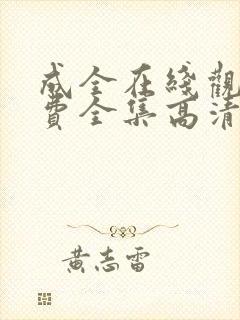 成全在綫觀
費全集高清
黃志雷